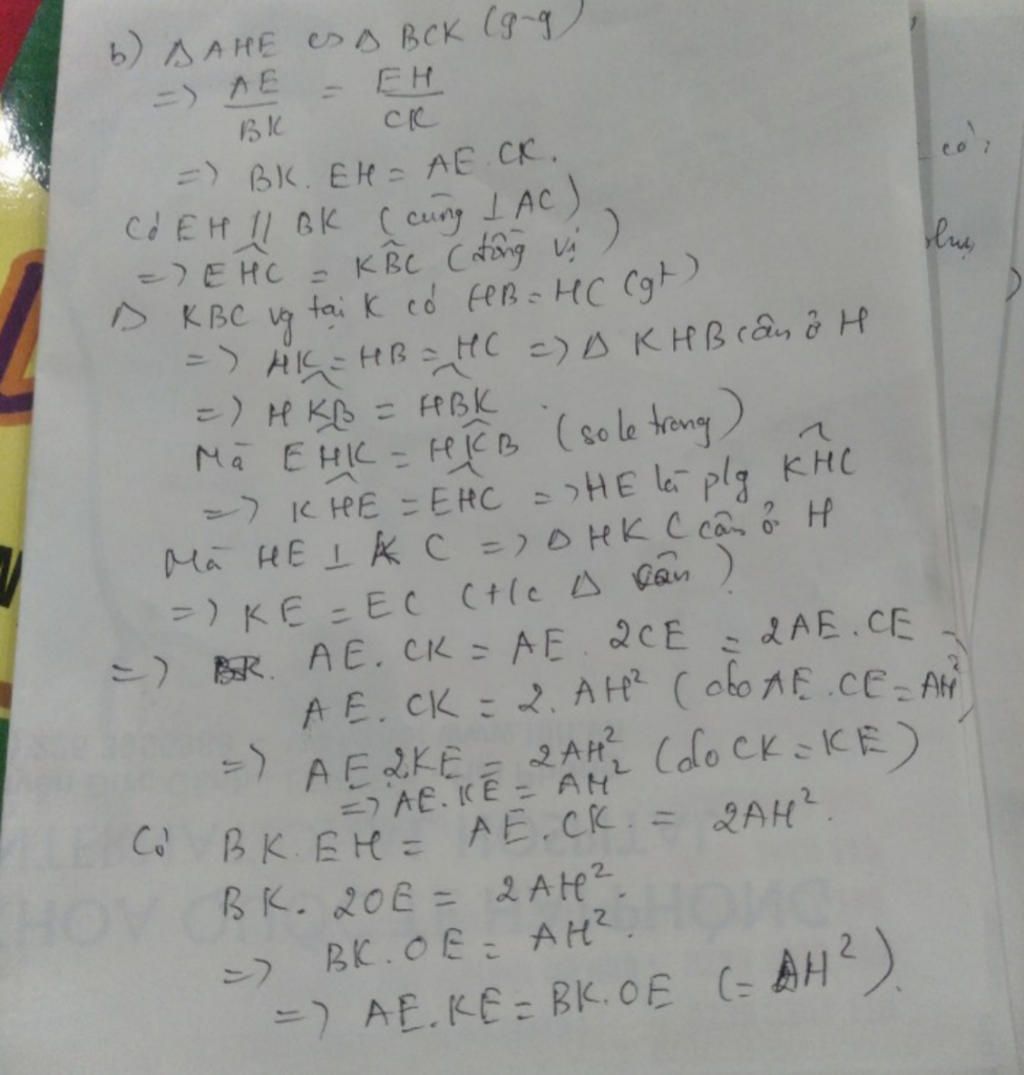 b) Δ AHE ∽ Δ BCK (g-g)
=> AE/BK = EH/CK
=> BK. EH = AE. CK.
Có EH // BK (cùng ⊥ AC)
=> EĤC = KB̂C (đồng vị)
Δ KBC vg tại K có HB = HC (gt)
=> HK = HB = HC => Δ KHB cân ở H
=> HK̂B = HB̂K
Mà EĤK = HK̂B (so le trong)
=> KĤE = EĤC => HE là plg KĤC
Mà HE ⊥ KC => Δ HKC cân ở H
=> KE = EC (t/c Δ cân)
=> AE. CK = AE. 2CE = 2AE. CE
AE. CK = 2. AH² (do AE. CE = AH²)
=> AE. 2KE = 2AH² (do CK = KE)
=> AE. KE = AH²
Có BK. EH = AE. CK. = 2AH².
BK. 2OE = 2AH².
=> BK. OE = AH².
=> AE. KE = BK. OE (= AH²).
có: